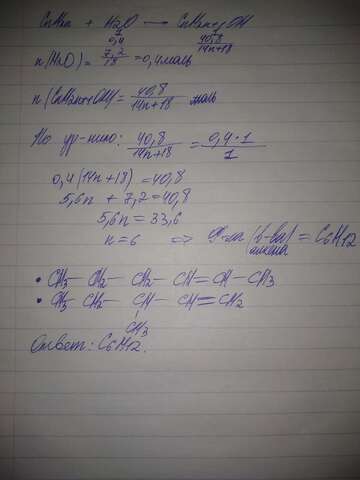 CnH2n + H2O → CnH2n+1OH
1 1
0,4 40,8/14n+18
n(H2O) = 7,2/18 = 0,4 моль
n(CnH2n+1OH) = 40,8/14n+18 моль
По ур-нию: 40,8/14n+18 = 0,4·1/1
0,4(14n+18) = 40,8
5,6n + 7,2 = 40,8
5,6n = 33,6
n = 6 ⇒ Ф-ла (в-ва) = C6H12
алкена
• CH3– CH2– CH2– CH=CH–CH3
• CH3– CH2– CH– CH=CH2
CH3
Ответ: C6H12.